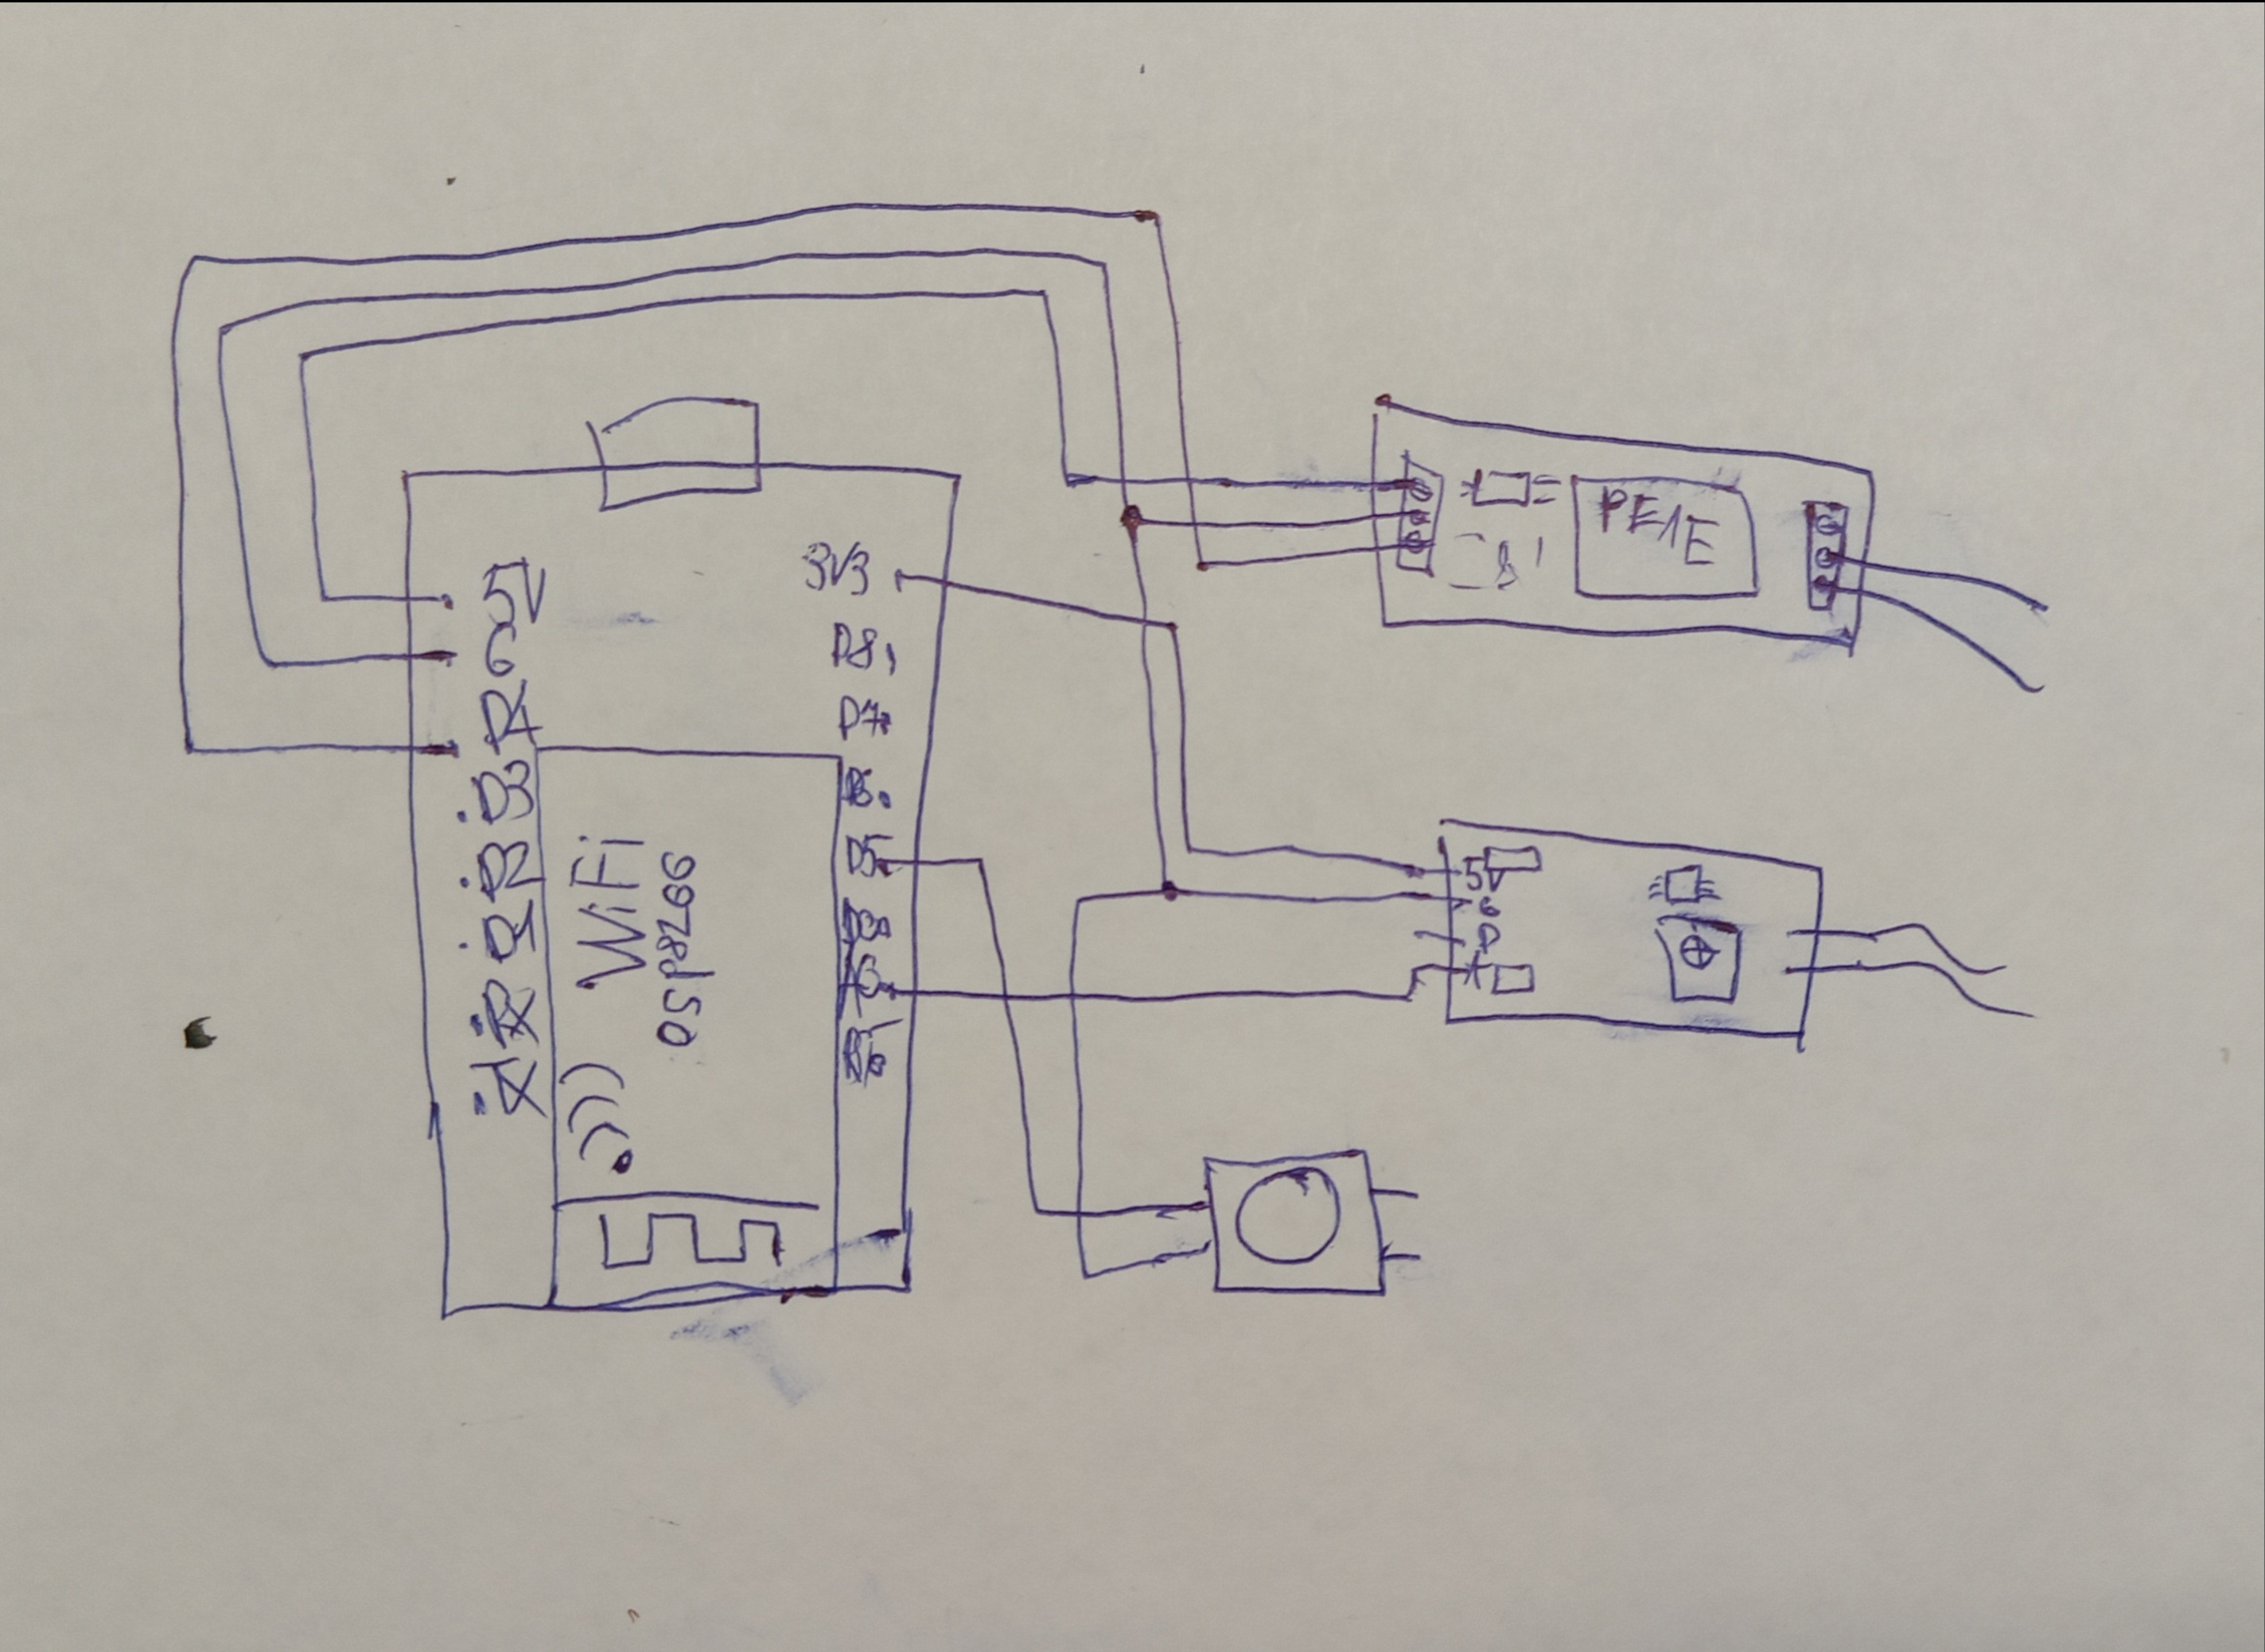 5V
G
D4
D3
D2
D1
RX
TX
3V3
D8
D7
D6
D5
D0
A0
WiFi
esp8266
РЕЛЕ
5V
G
D
A